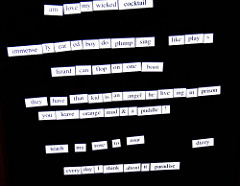 am love my wicked cocktail
immense ly eat ed boy do plump sing like play s
heard can flop on one boot
they have this kid is an angel he live ing in prison
you leave orange mud & a puddle !
teach my rose to soar dizzy
every day I think about it paradise